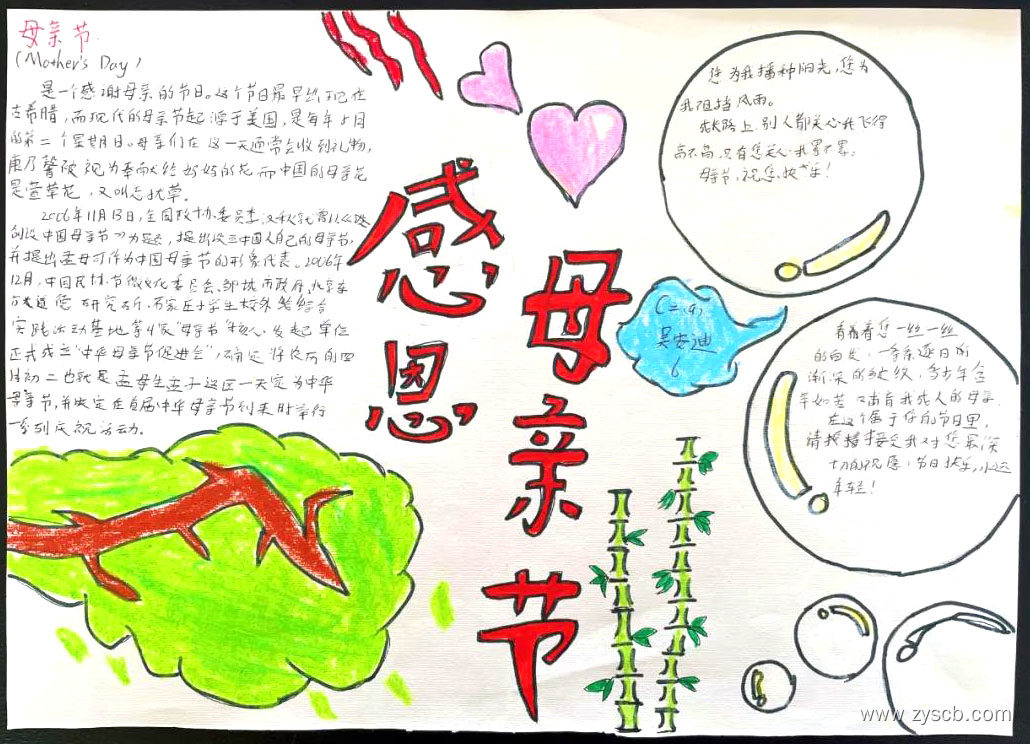 母亲节
(Mother's Day)
是一个感谢母亲的节日。这个节日最早出现在
古希腊,而现代的母亲节起源于美国,是每年5月
的第二个星期日。母亲们在这一天通常会收到礼物,
康乃馨被视为奉献给妈妈的花,而中国的母亲花
是萱草花,又叫忘忧草。
2006年11月13日,全国政协委员李汉秋
创设中国母亲节》为题,提出设立中国人自己的母亲节,
并提出孟母可作为中国母亲节的形象代表。2006年
12月,中国民协节俗文化委员会、邹城市政府、北京东
方道德研究所、石家庄小学生校外综合
实践活动基地等"母亲节"发起单位
正式成立"中华母亲节促进会",确定将农历的四
月初二也就是孟母生孟子这一天定为中华
母亲节,并决定在首届中华母亲节到来时举行
一系列庆祝活动。
感恩
母亲节
吴安迪
6
您为我播种阳光,您为
我阻挡风雨。
成长路上,别人都关心我飞得
高不高,只有您关心我累不累。
母亲节,祝您快乐!
看着您一丝一丝
的白发,一条条逐日
渐深的皱纹,多少年含
辛茹苦哺育我成人的母亲,
在这个属于您的节日里,
请接受我对您最深
切的祝愿:节日快乐,永远
年轻!
www.zyscb.com